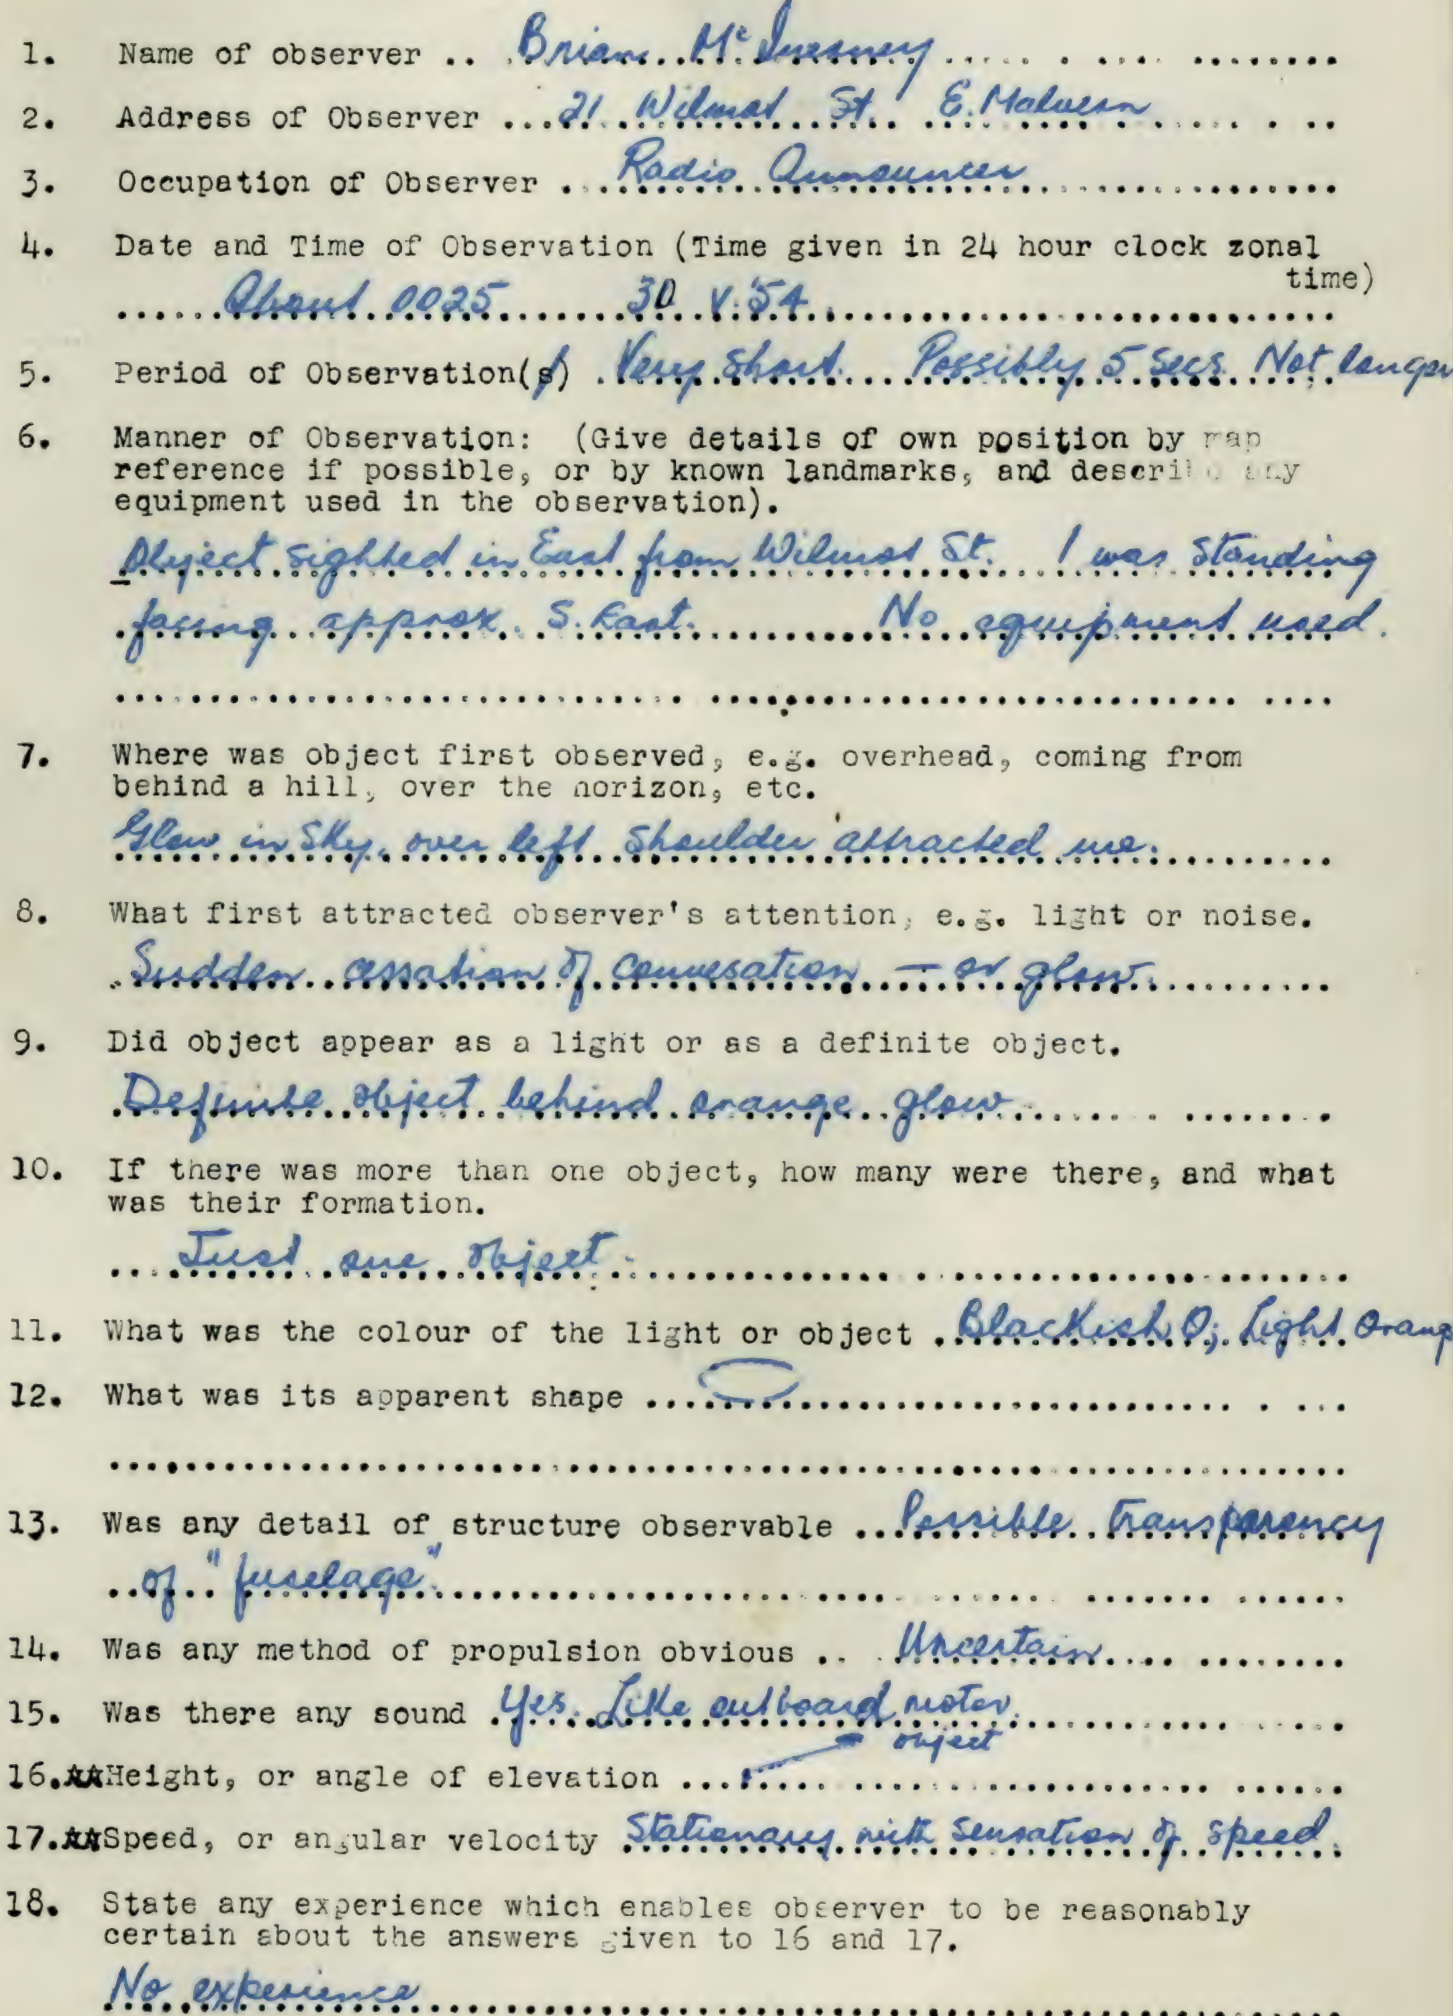 1. Name of observer .. Brian Mc
2. Address of Observer ... 21 Wilmot St. E. Malvern
3. Occupation of Observer ... Radio Announcer
4. Date and Time of Observation (Time given in 24 hour clock zonal
time)
About 0025 30 V. 54.
5. Period of Observation(s) . Very Short. Possibly 5 Secs. Not longer
6. Manner of Observation: (Give details of own position by map
reference if possible, or by known landmarks, and describe any
equipment used in the observation).
Object sighted in East from Wilmot St. I was standing
facing approx. S. East. No equipment used.
7. Where was object first observed, e.g. overhead, coming from
behind a hill, over the horizon, etc.
Glow in Sky, over left shoulder attracted me.
8. What first attracted observer's attention, e.g. light or noise.
Sudden cessation of conversation — or glow.
9. Did object appear as a light or as a definite object.
Definite object behind orange glow
10. If there was more than one object, how many were there, and what
was their formation.
Just one object.
11. What was the colour of the light or object . Blackish O; Light Orang
12. What was its apparent shape ....
13. Was any detail of structure observable ... Possible transparency
of "fuselage"
14. Was any method of propulsion obvious .. Uncertain
15. Was there any sound . Yes. Like outboard motor.
object
16. Height, or angle of elevation ...
17. Speed, or angular velocity Stationary with sensation of speed.
18. State any experience which enables observer to be reasonably
certain about the answers given to 16 and 17.
No experience